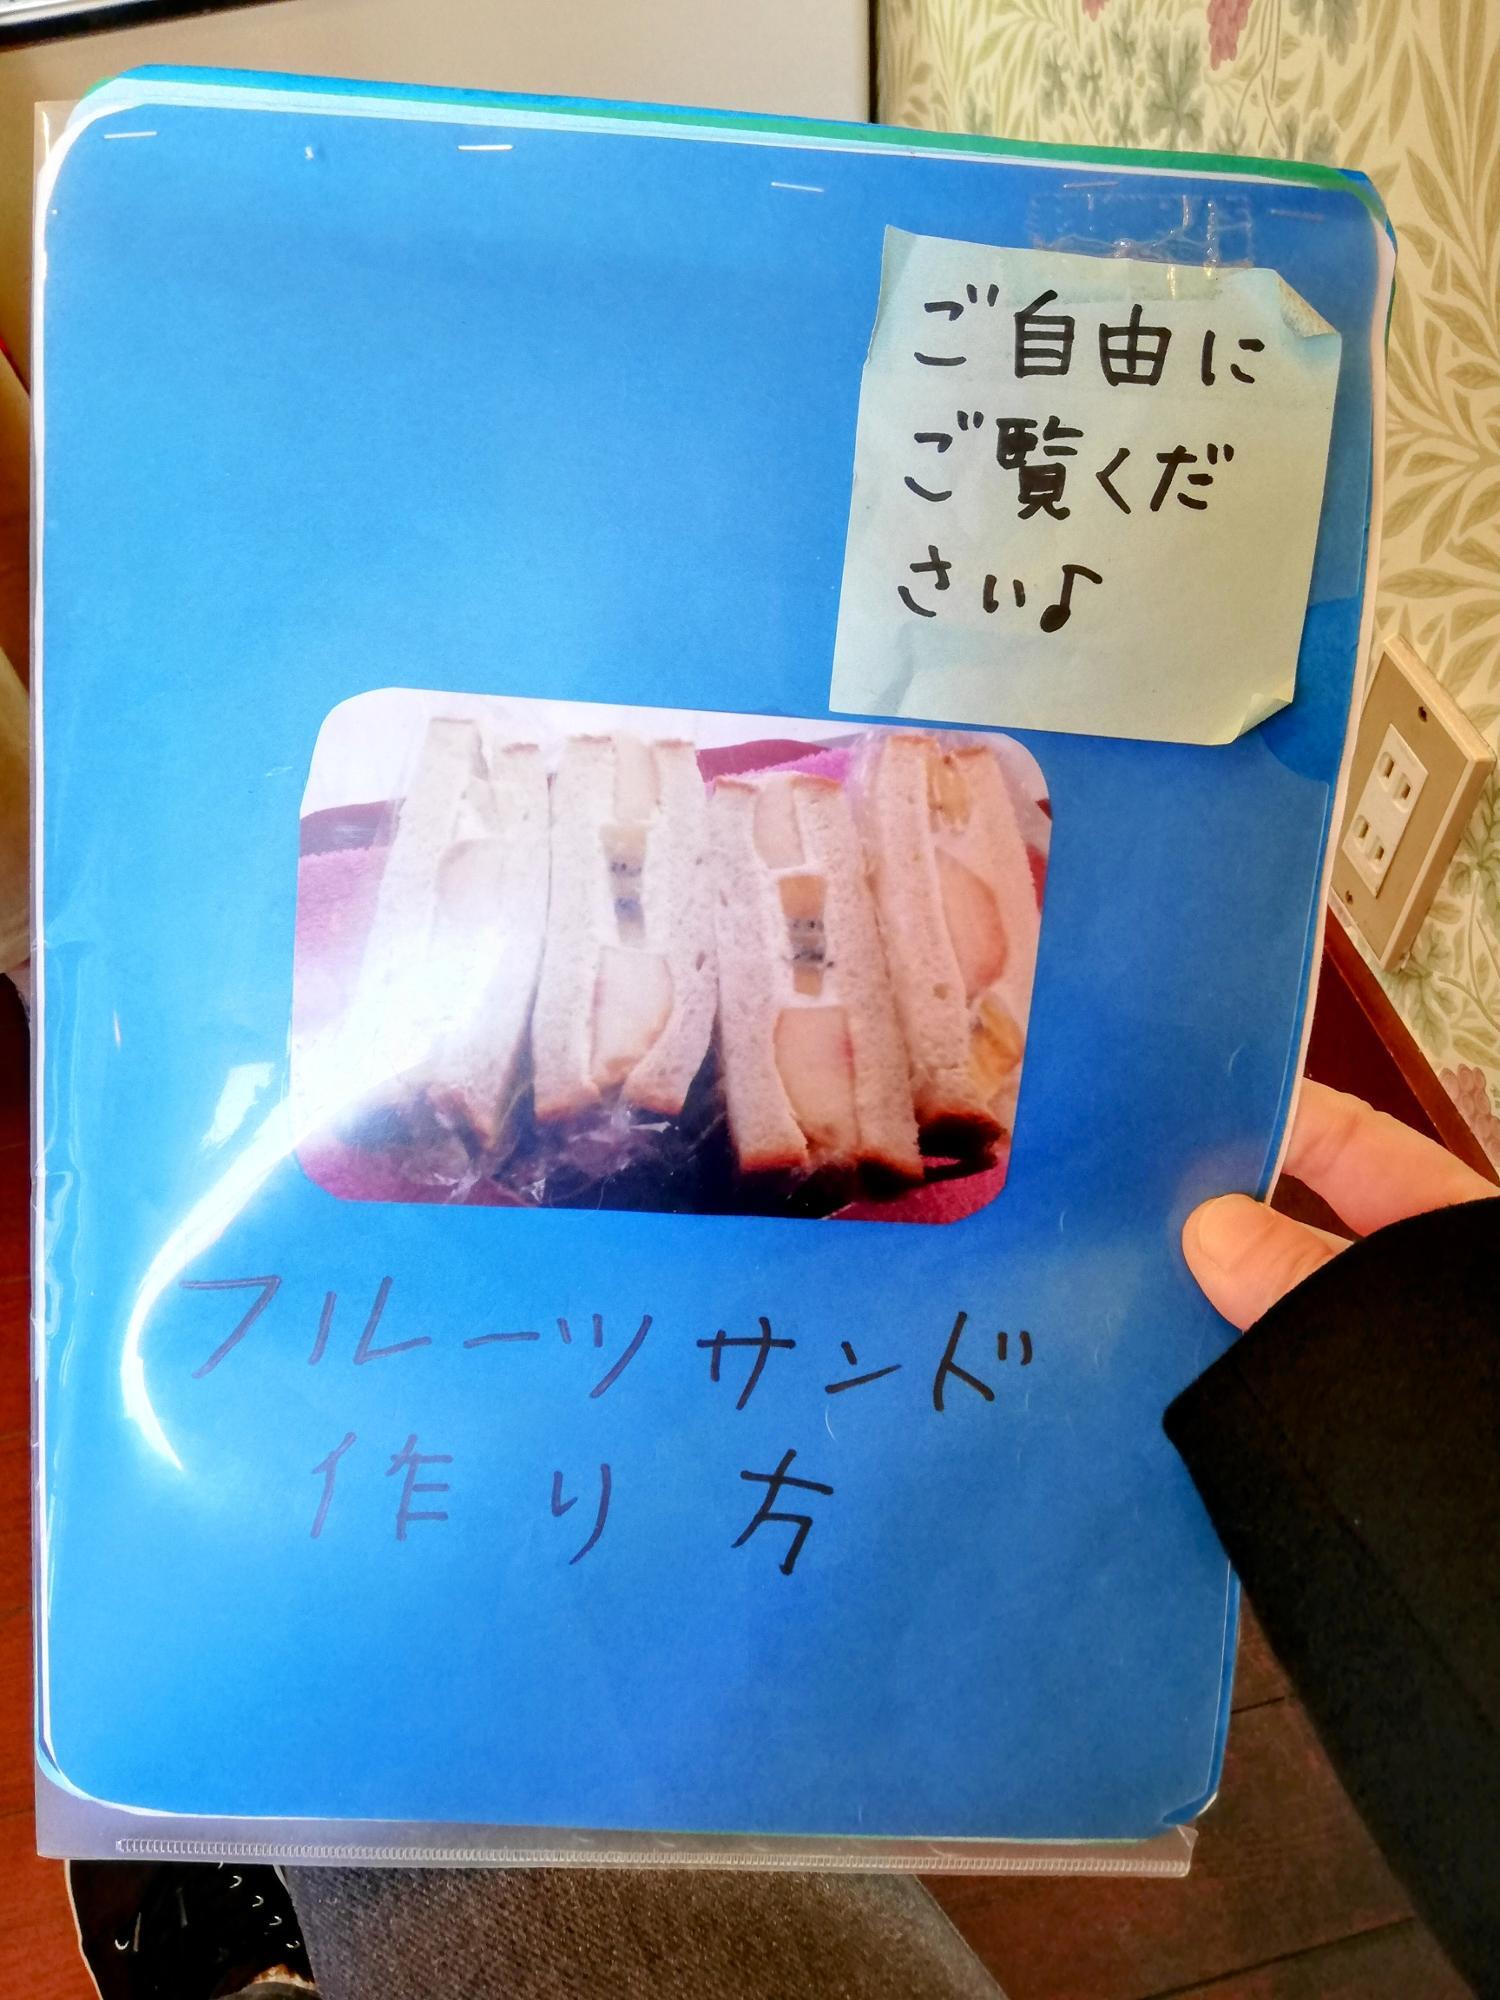 ご自由に
ご覧くだ
さい♪
フルーツサンド
作り方